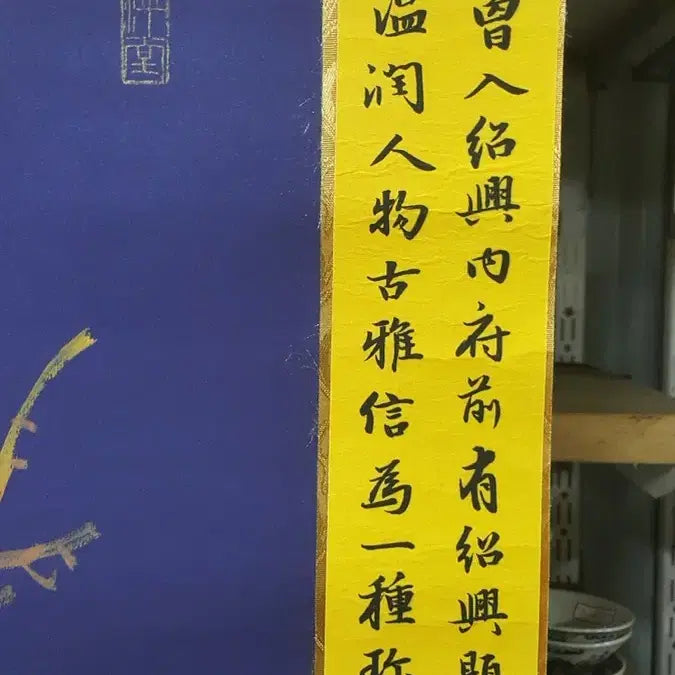 曾入紹興内府前有紹興
温潤人物古雅信為一種
堂